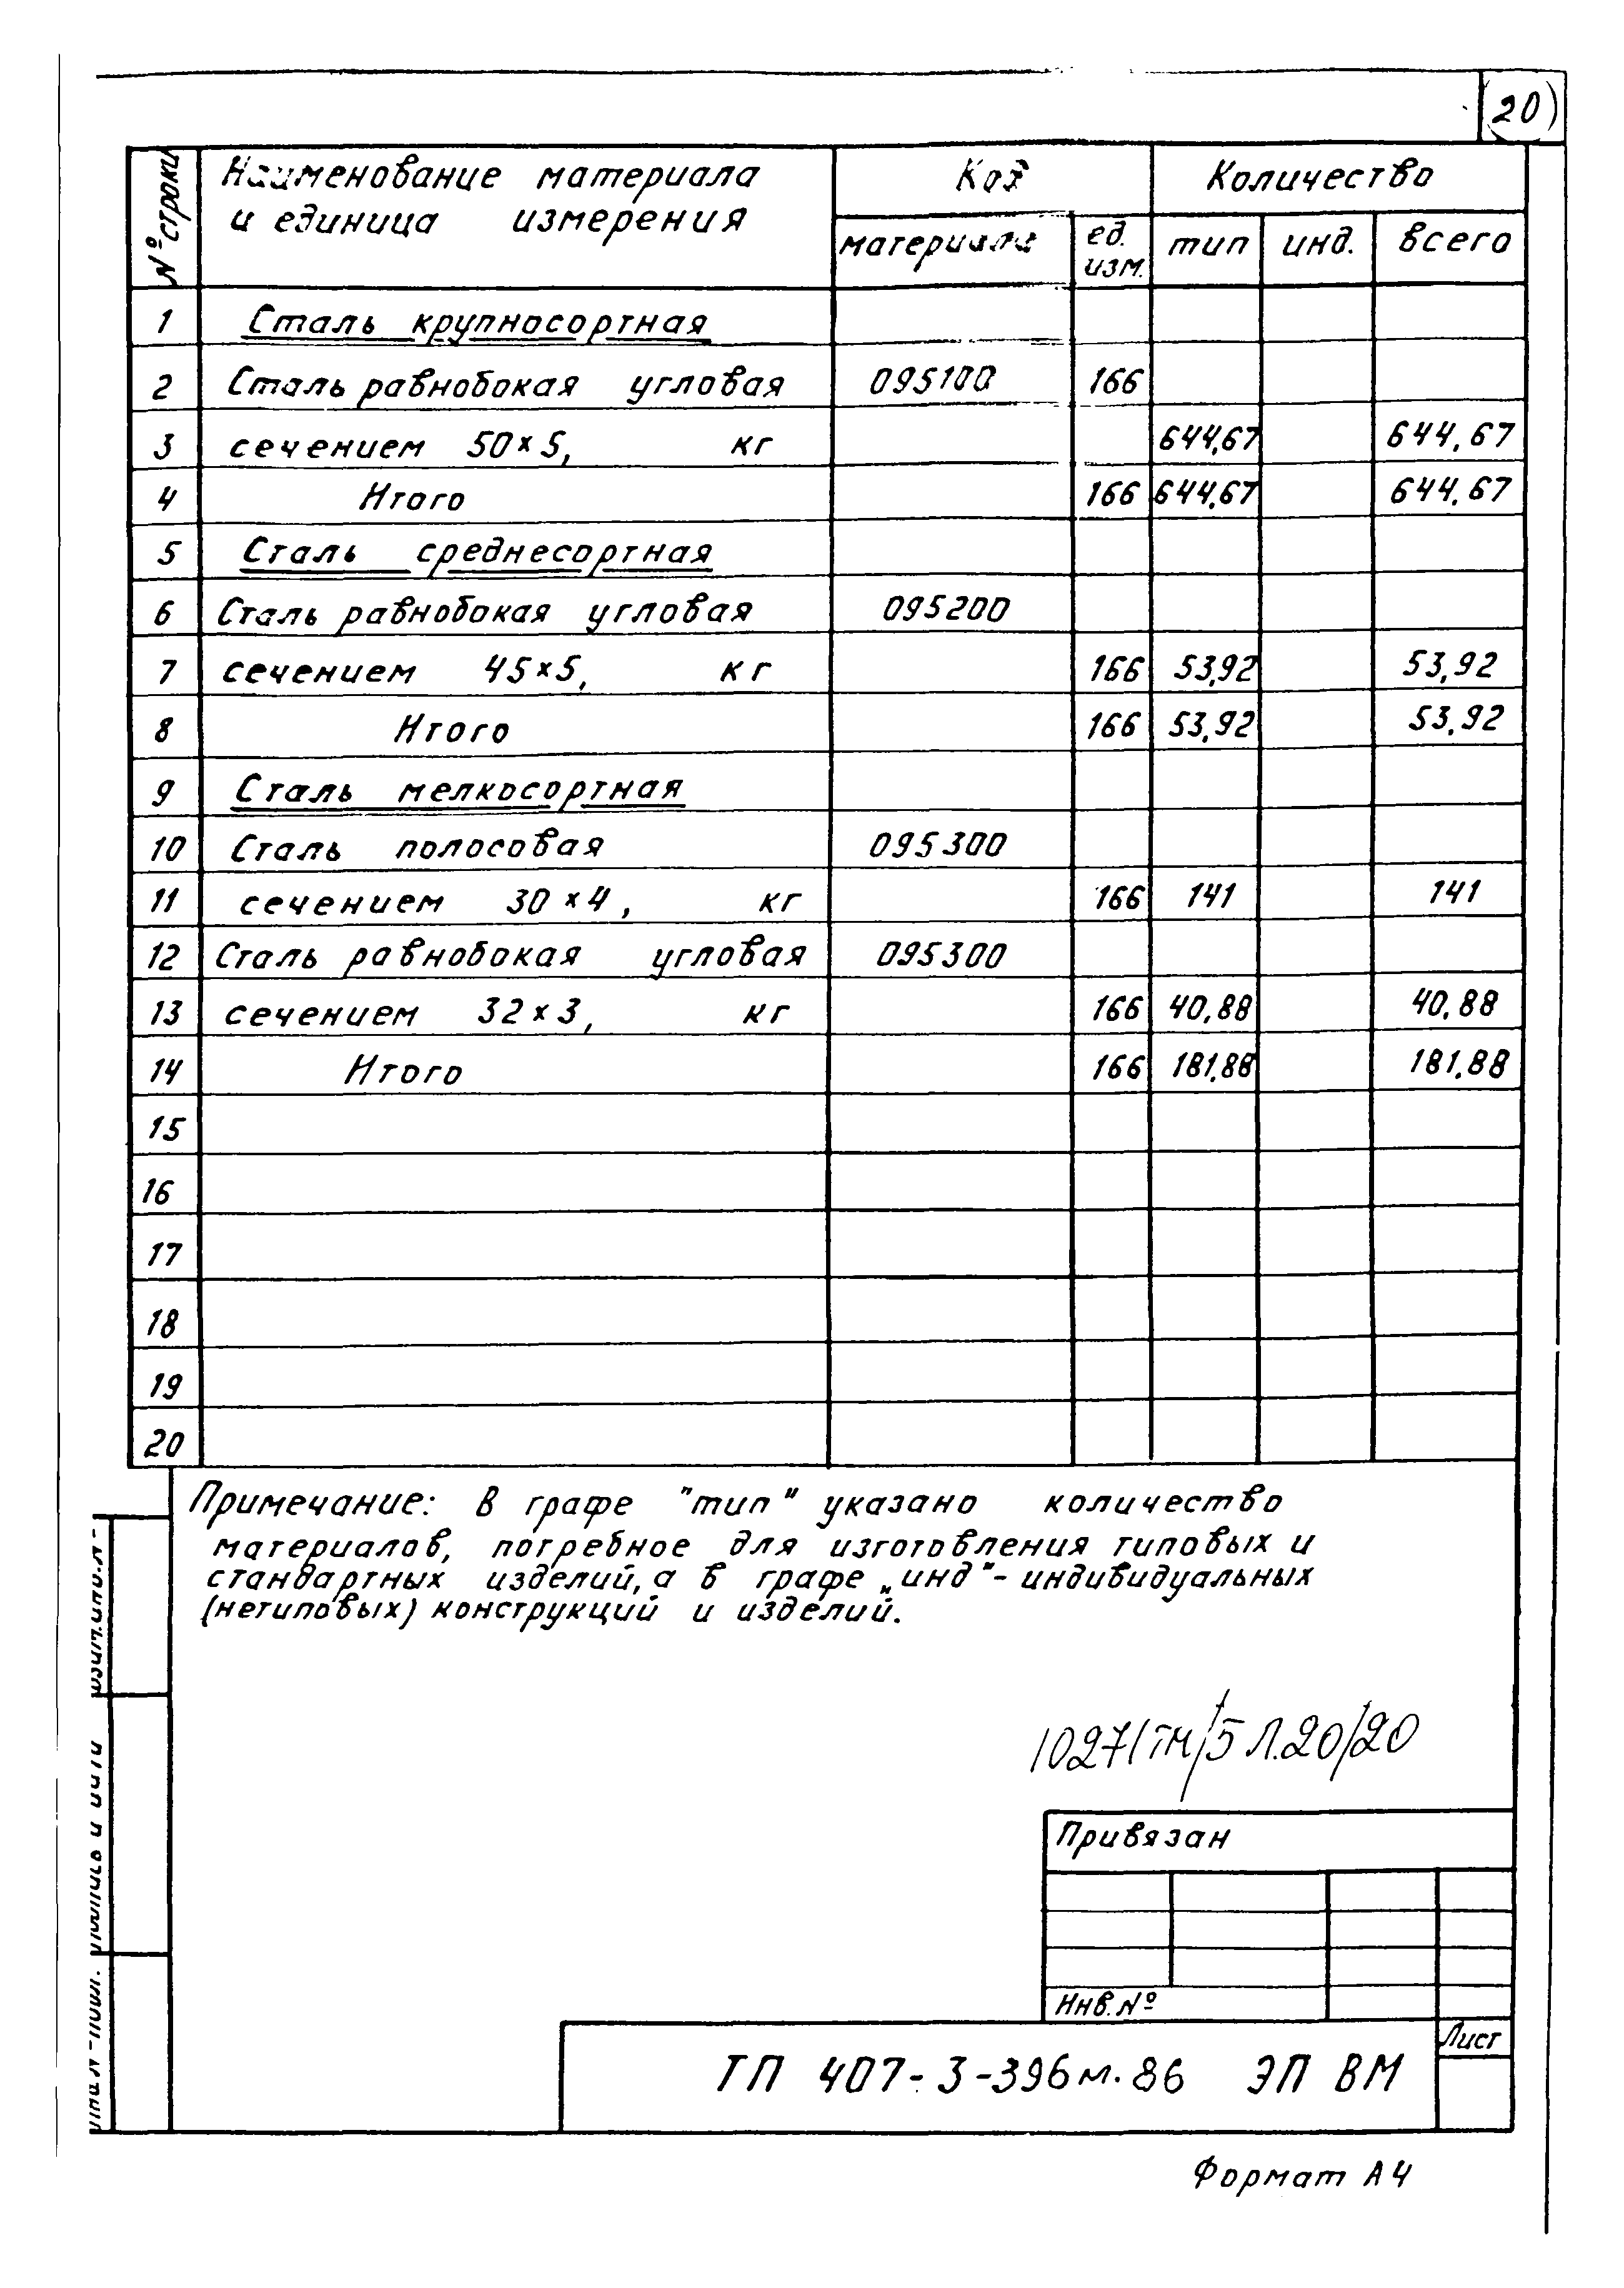 (20)
№ строки
Наименование материала
и единица измерения
Код
Количество
материала
ед.
изм.
тип
инд.
всего
1 Сталь крупносортная
2 Сталь равнобокая угловая 095100 166
3 сечением 50×5, кг 644,67 644,67
4 Итого 166 644,67 644,67
5 Сталь среднесортная
6 Сталь равнобокая угловая 095200
7 сечением 45×5, кг 166 53,92 53,92
8 Итого 166 53,92 53,92
9 Сталь мелкосортная
10 Сталь полосовая 095300
11 сечением 30×4, кг 166 141 141
12 Сталь равнобокая угловая 095300
13 сечением 32×3, кг 166 40,88 40,88
14 Итого 166 181,88 181,88
15
16
17
18
19
20
Примечание: В графе "тип" указано количество
материалов, потребное для изготовления типовых и
стандартных изделий, а в графе „инд"- индивидуальных
(нетиповых) конструкций и изделий.
10271тм/5 Л.20/20
Привязан
Инв. №
Лист
ТП 407-3-396м.86 ЭП ВМ
Формат А4